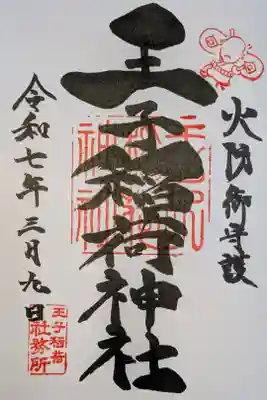 火防御守護
王子稲荷神社
王子稲荷
神社
令和七年三月九日
王子稲荷
社務所